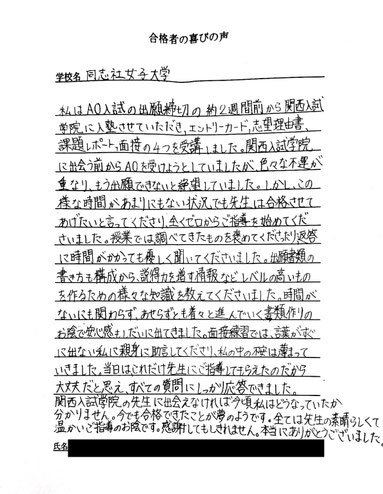 合格者の喜びの声
学校名 同志社女子大学
私はAO入試の出願締切の約2週間前から関西入試
学院に入塾させていただき、エントリーカード、志望理由書、
課題レポート、面接の4つを受講しました。関西入試学院
に出会う前からAOを受けようとしていましたが、色々な不運が
重なり、もう出願できないと絶望していました。しかし、この
様な時間があまりにもない状況でも先生は合格させて
あげたいと言ってくださり、全くゼロからご指導を始めてくだ
さいました。授業では調べてきたものを褒めてくださったり、返答
に時間がかかっても優しく聞いてくださいました。出願書類の
書き方も構成から、説得力を増す情報などレベルの高いもの
を作るための様々な知識を教えてくださいました。時間が
ないにも関わらず、あせらずとも着々と進んでいく書類作りの
お陰で安心感もしだいに出てきました。面接練習では、言葉がすぐ
に出ない私に親身に助言してくださり、私の中の不安は薄まって
いきました。当日はこれだけ先生にご指導してもらえたのだから
大丈夫だと思え、すべての質問にしっかり応答できました。
関西入試学院の先生に出会えなければ今頃、私はどうなっていたか
分かりません。今でも合格できたことが夢のようです。全ては先生の素晴らしくて
温かいご指導のお陰です。感謝してもしきれません。本当にありがとうございました。
氏名